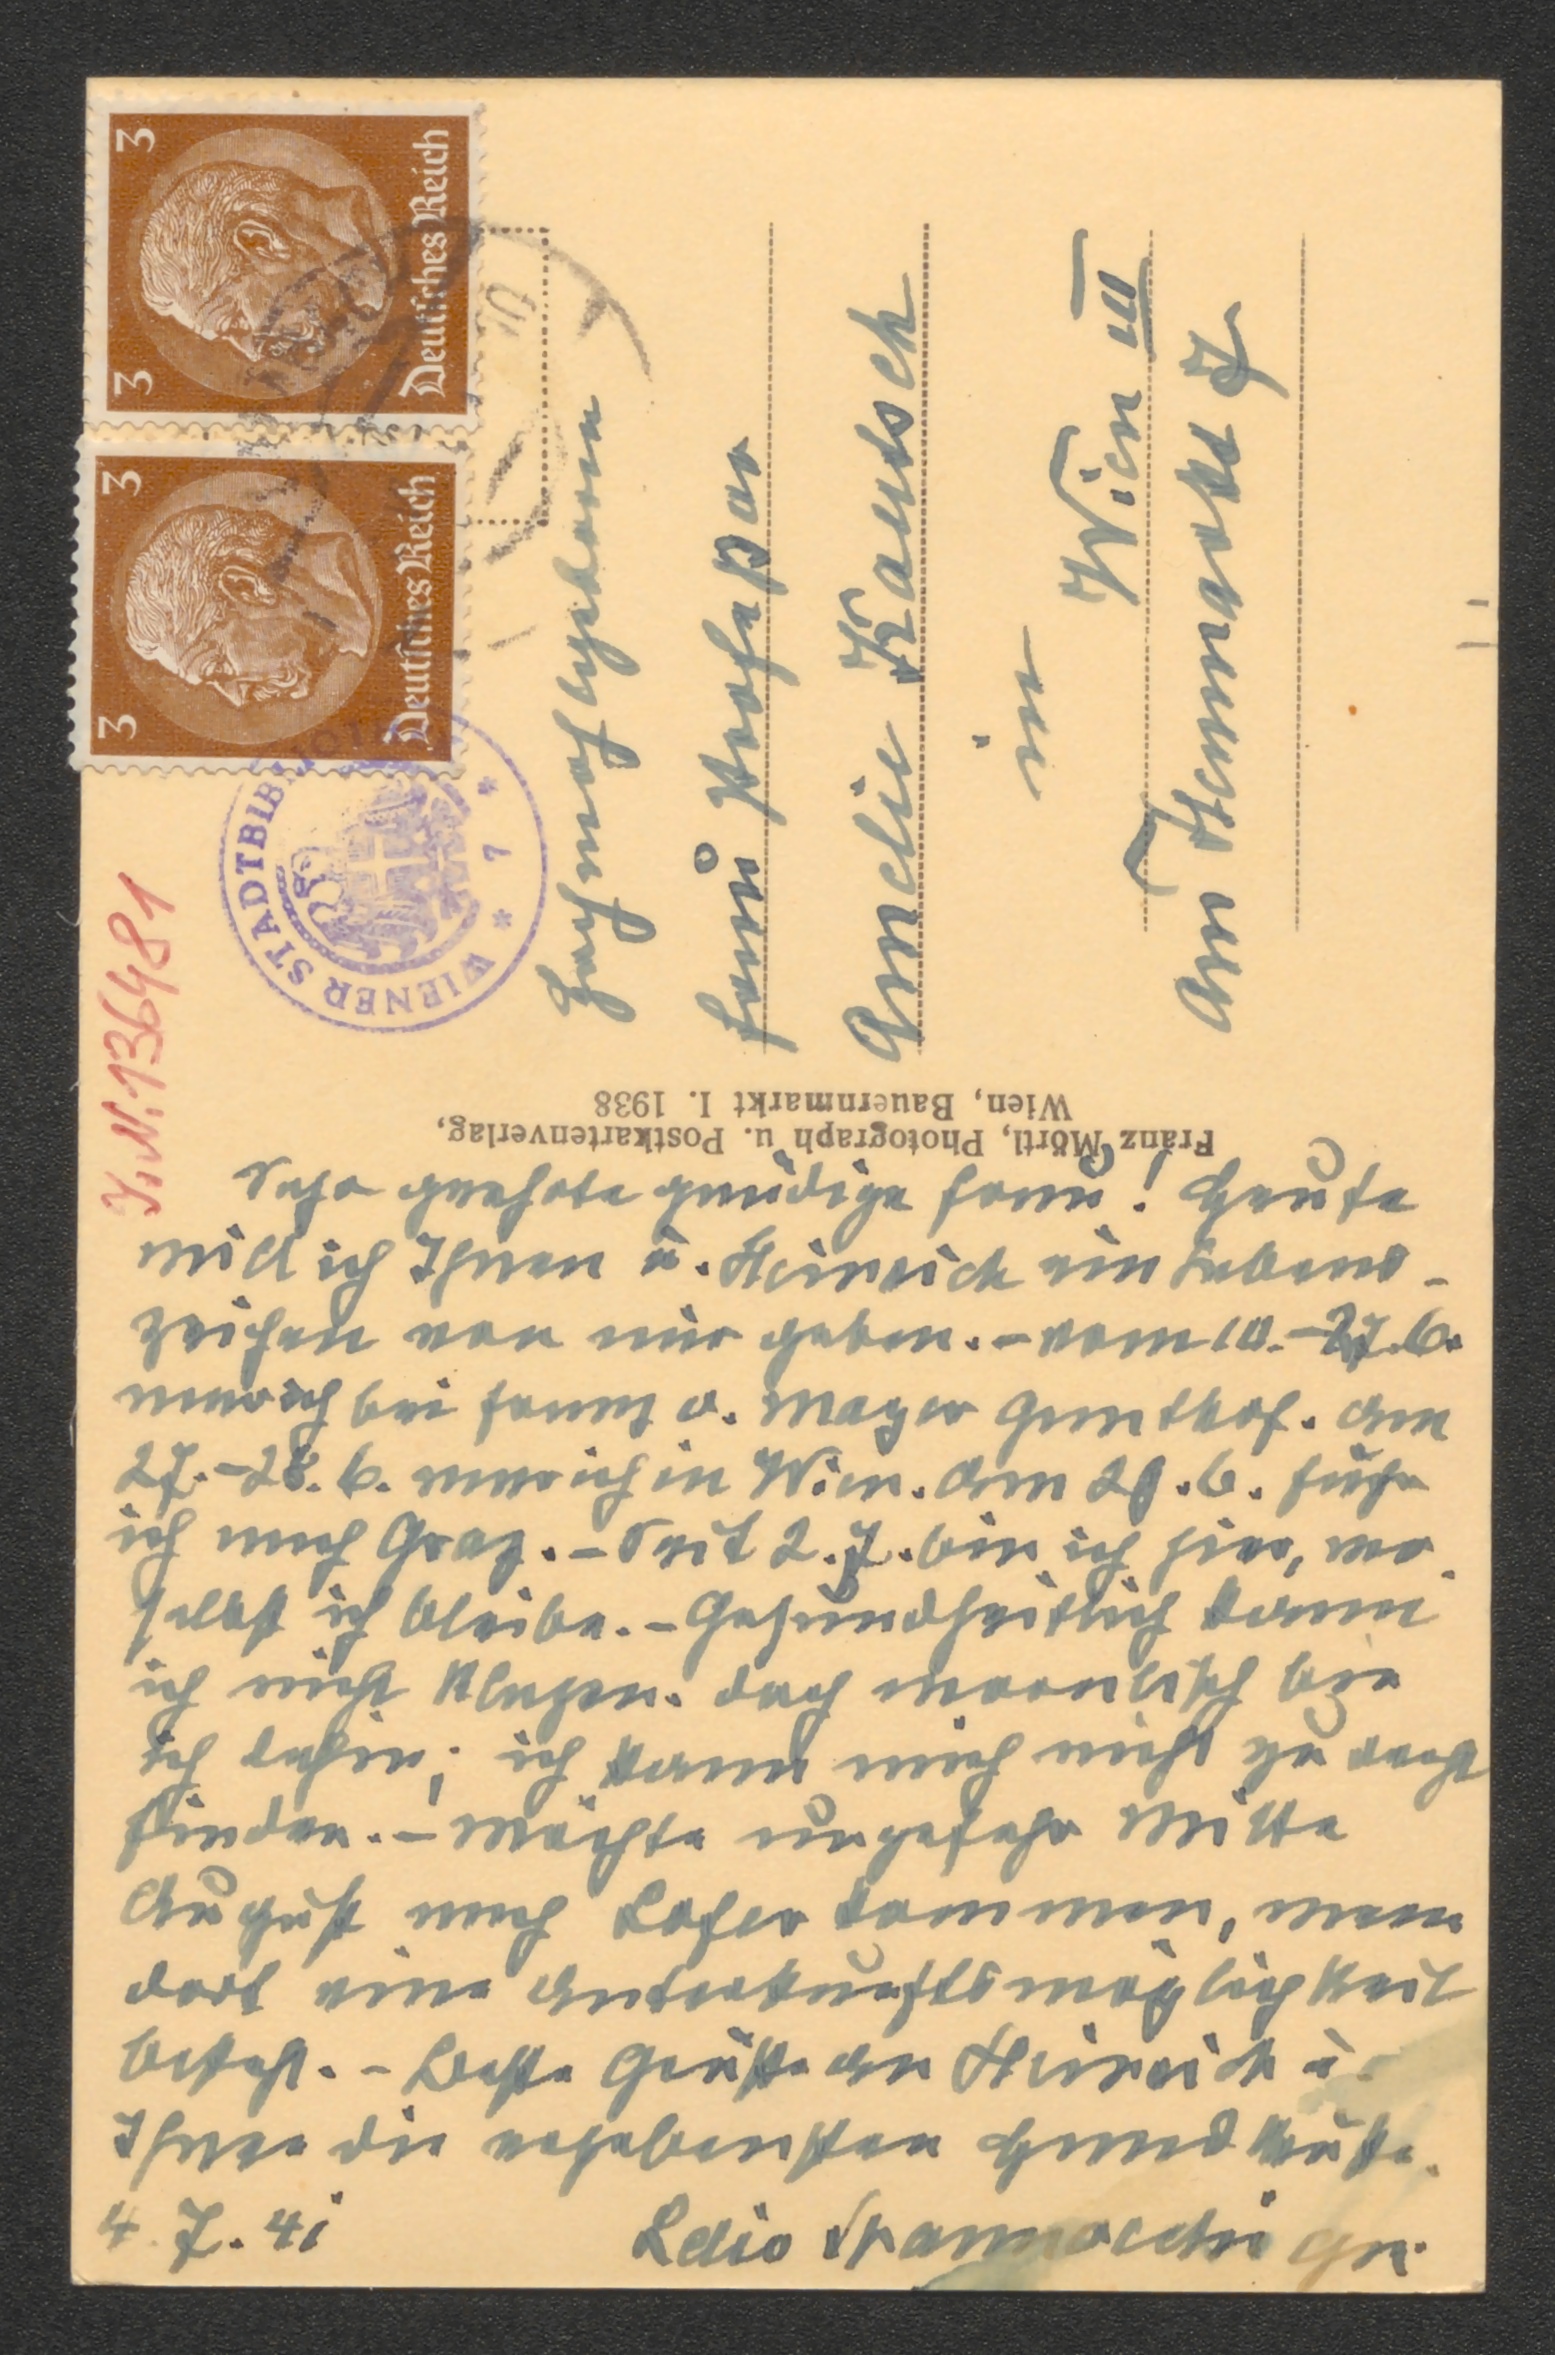 3 3 Deutsches Reich
3 3 Deutsches Reich
WIENER STADTBIBLIOTHEK * 7 *
I.N. 136481
Hochwohlgeboren
Frau Professor
Amelie Kautsch
in
Wien III
Am Heumarkt 7
Franz Mörtl, Photograph u. Postkartenverlag,
Wien, Bauernmarkt I. 1938
Sehr geehrte gnädige Frau! Heute
will ich Ihnen u. Heinrich ein Lebens-
zeichen von mir geben. – vom 10. – 27.6.
war ich bei Franz v. Mayer Gunthof. Am
27. – 28.6. war ich in Wien. Am 28.6. fuhr
ich nach Graz. – Seit 2.7. bin ich hier, wo
selbst ich bleibe. – Gesundheitlich kann
ich nicht klagen. doch moralisch bin
ich dahin; ich kann mich nicht zu recht
finden. – Möchte ungefähr Mitte
August nach Lofer kommen, wenn
dort eine Unterkunftsmöglichkeit
besteht. – Beste Grüße an Heinrich u.
Ihnen die ergebensten Handküsse.
4.7.41 Lelio Spannocchi